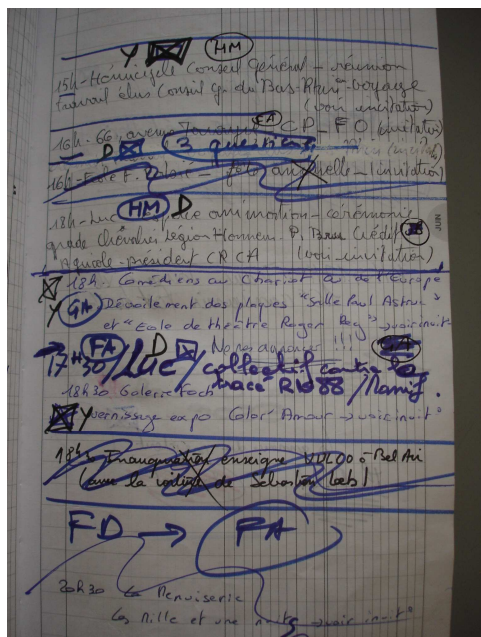 Y HM
15h - Hémicycle Conseil Général - réunion
travail élus Conseil G. du Bas-Rhin - voyage
(voir invitation)
16h - 66, avenue CA CP - FO (invitation)
D (3
16h - Ecole F. - fête annuelle - (invitation)
HM D
18h - Luc - place animation - cérémonie
grade Chevalier Légion Honneur - P. Brun Crédit
Agricole - président CRCA (voir invitation)
18h. Comédiens au Chariot de l'Europe
Y GA Dévoilement des plaques "Salle Paul Astruc"
et "Ecole de théâtre Roger" → voir invit°
→ FA D Ne pas annoncer !!! GA
17H30/Luc/collectif contre le
tracé R1088/Manif.
18h30 Galerie Foch
Y Vernissage expo Color'Amour → voir invit°
18h - Inauguration enseigne VULCO - Bel Air
(avec la voiture de Sébastien Loeb)
FD → FA
20h30 La Menuiserie
Les Mille et une nuits → voir invit°
JUN